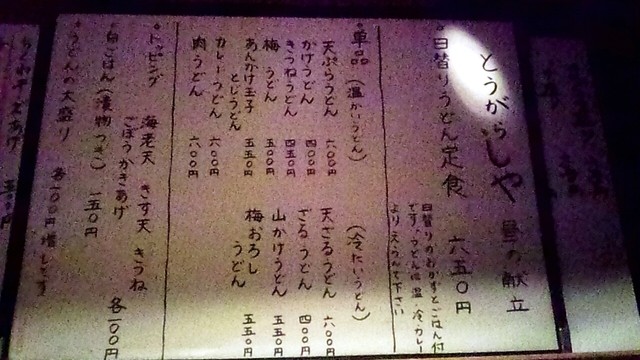 とうがらしや 昼の献立
日替りうどん定食 六五〇円
日替りのおかずとごはん付
です。うどんは温・冷・カレー
よりえらんで下さい
単品 (温かいうどん)
天ぷらうどん 六〇〇円
かけうどん 四〇〇円
きつねうどん 四五〇円
梅うどん 五五〇円
あんかけ玉子
とじうどん 五五〇円
カレーうどん 六〇〇円
肉うどん 六〇〇円
(冷たいうどん)
天ざるうどん 六〇〇円
ざるうどん 四〇〇円
山かけうどん 五五〇円
梅おろし
うどん 五五〇円
トッピング
海老天 きす天 きつね
ごぼうかきあげ 各一〇〇円
白ごはん(漬物つき) 一五〇円
うどんの大盛り 各一〇〇円増しです